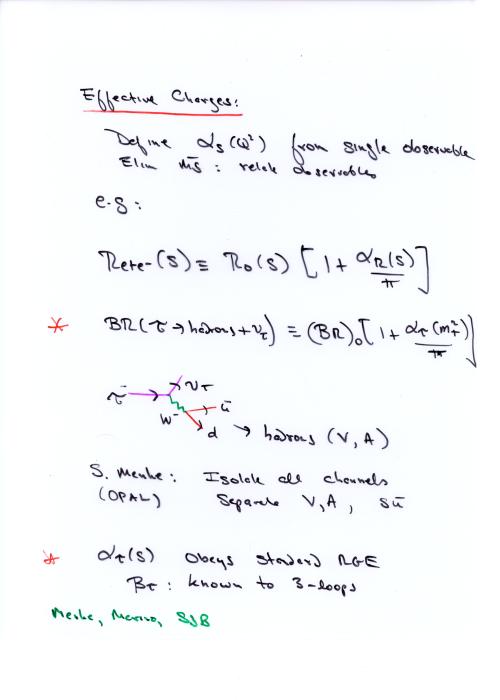 Effective Charges:
Define αs(Q²) from single observable
Elim M̄S̄ : relate observables
e.g:
Re+e-(s) ≡ R₀(s) [1 + αR(s)/π]
* BR(τ → hadrons + ντ) ≡ (BR)₀ [1 + ατ(mτ²)/π]
τ⁻ ντ
W⁻ ū
d → hadrons (V, A)
S. Menke: Isolate all channels
(OPAL) Separate V, A, sū
* ατ(s) obeys standard RGE
βτ : known to 3-loops
Menke, Merino, SJB